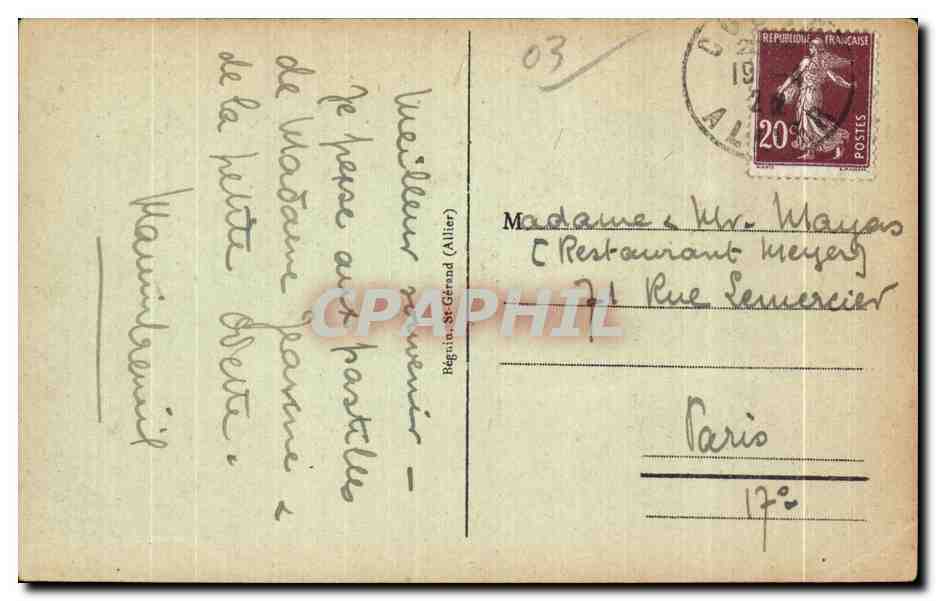 Meilleur souvenir –
Je pense aux pastilles
de Madame Jeanne &
de la petite Odette.
Bégnin, St-Gérand (Allier)
03
RÉPUBLIQUE FRANÇAISE
20c
POSTES
19
Madame & Mr. Mayas
(Restaurant Meyer)
71 Rue Lemercier
Paris
17e
CPAPHIL